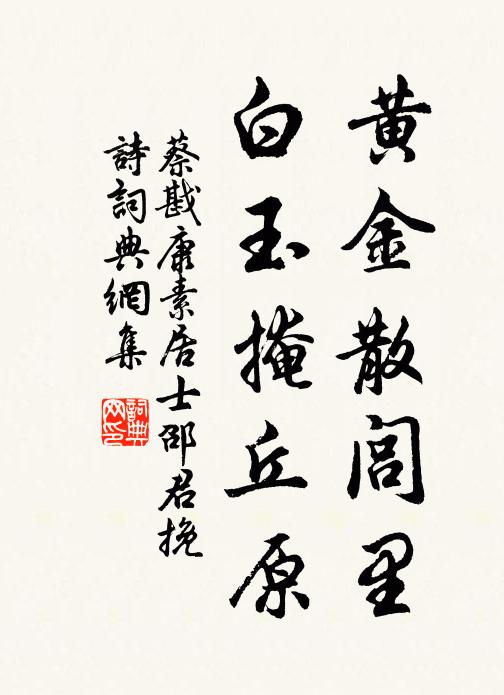 黄金散閭里
白玉掩丘原
蔡戡康素居士邵君挽
詩詞典網集
詞典
网印